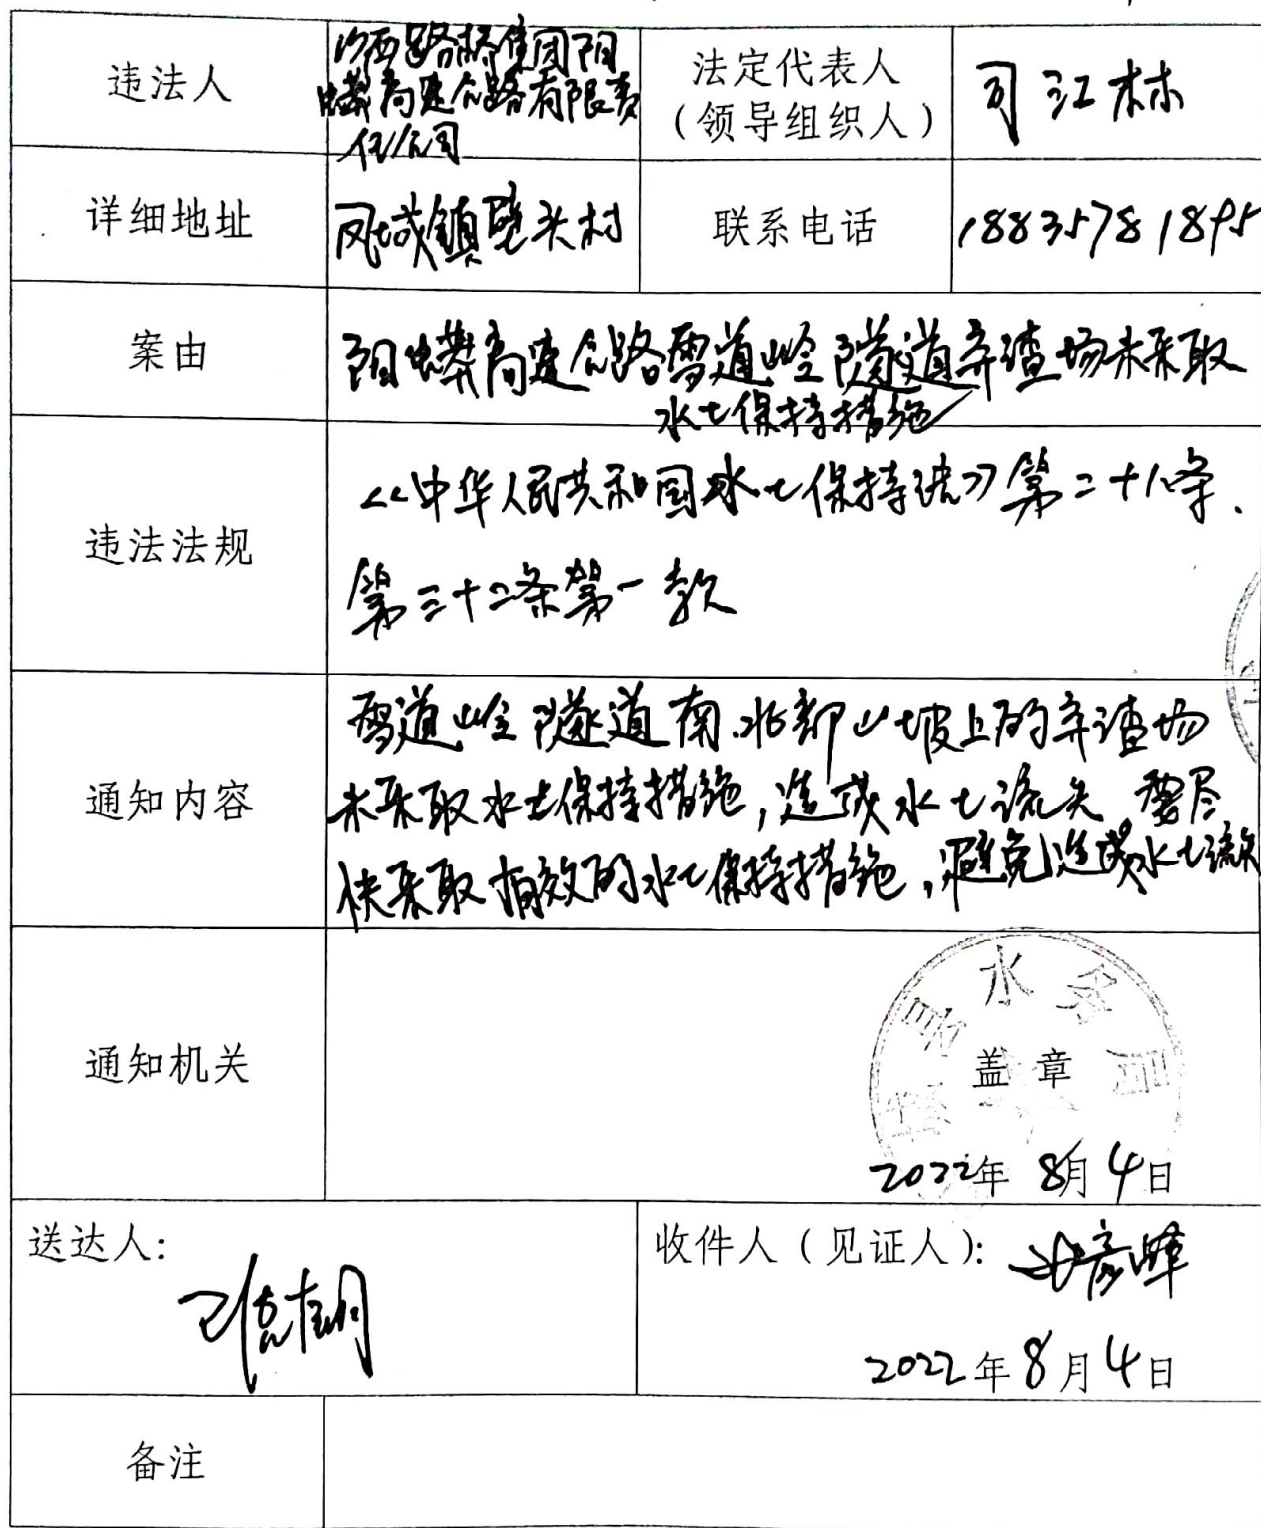 违法人
山西路桥集团阳
蟒高速公路有限责
任公司
法定代表人
（领导组织人）
司江林
详细地址
凤城镇壁头村
联系电话
18835781895
案由
阳蟒高速公路雪道岭隧道弃渣场未采取
水土保持措施
违法法规
《中华人民共和国水土保持法》第二十八条、
第三十二条第一款
通知内容
雪道岭隧道南、北部山坡上的弃渣场
未采取水土保持措施,造成水土流失 要尽
快采取有效的水土保持措施,避免造成水土流失
通知机关
县水务局
盖章
2022年 8月 4日
送达人:
收件人（见证人）:
2022年 8月 4日
备注